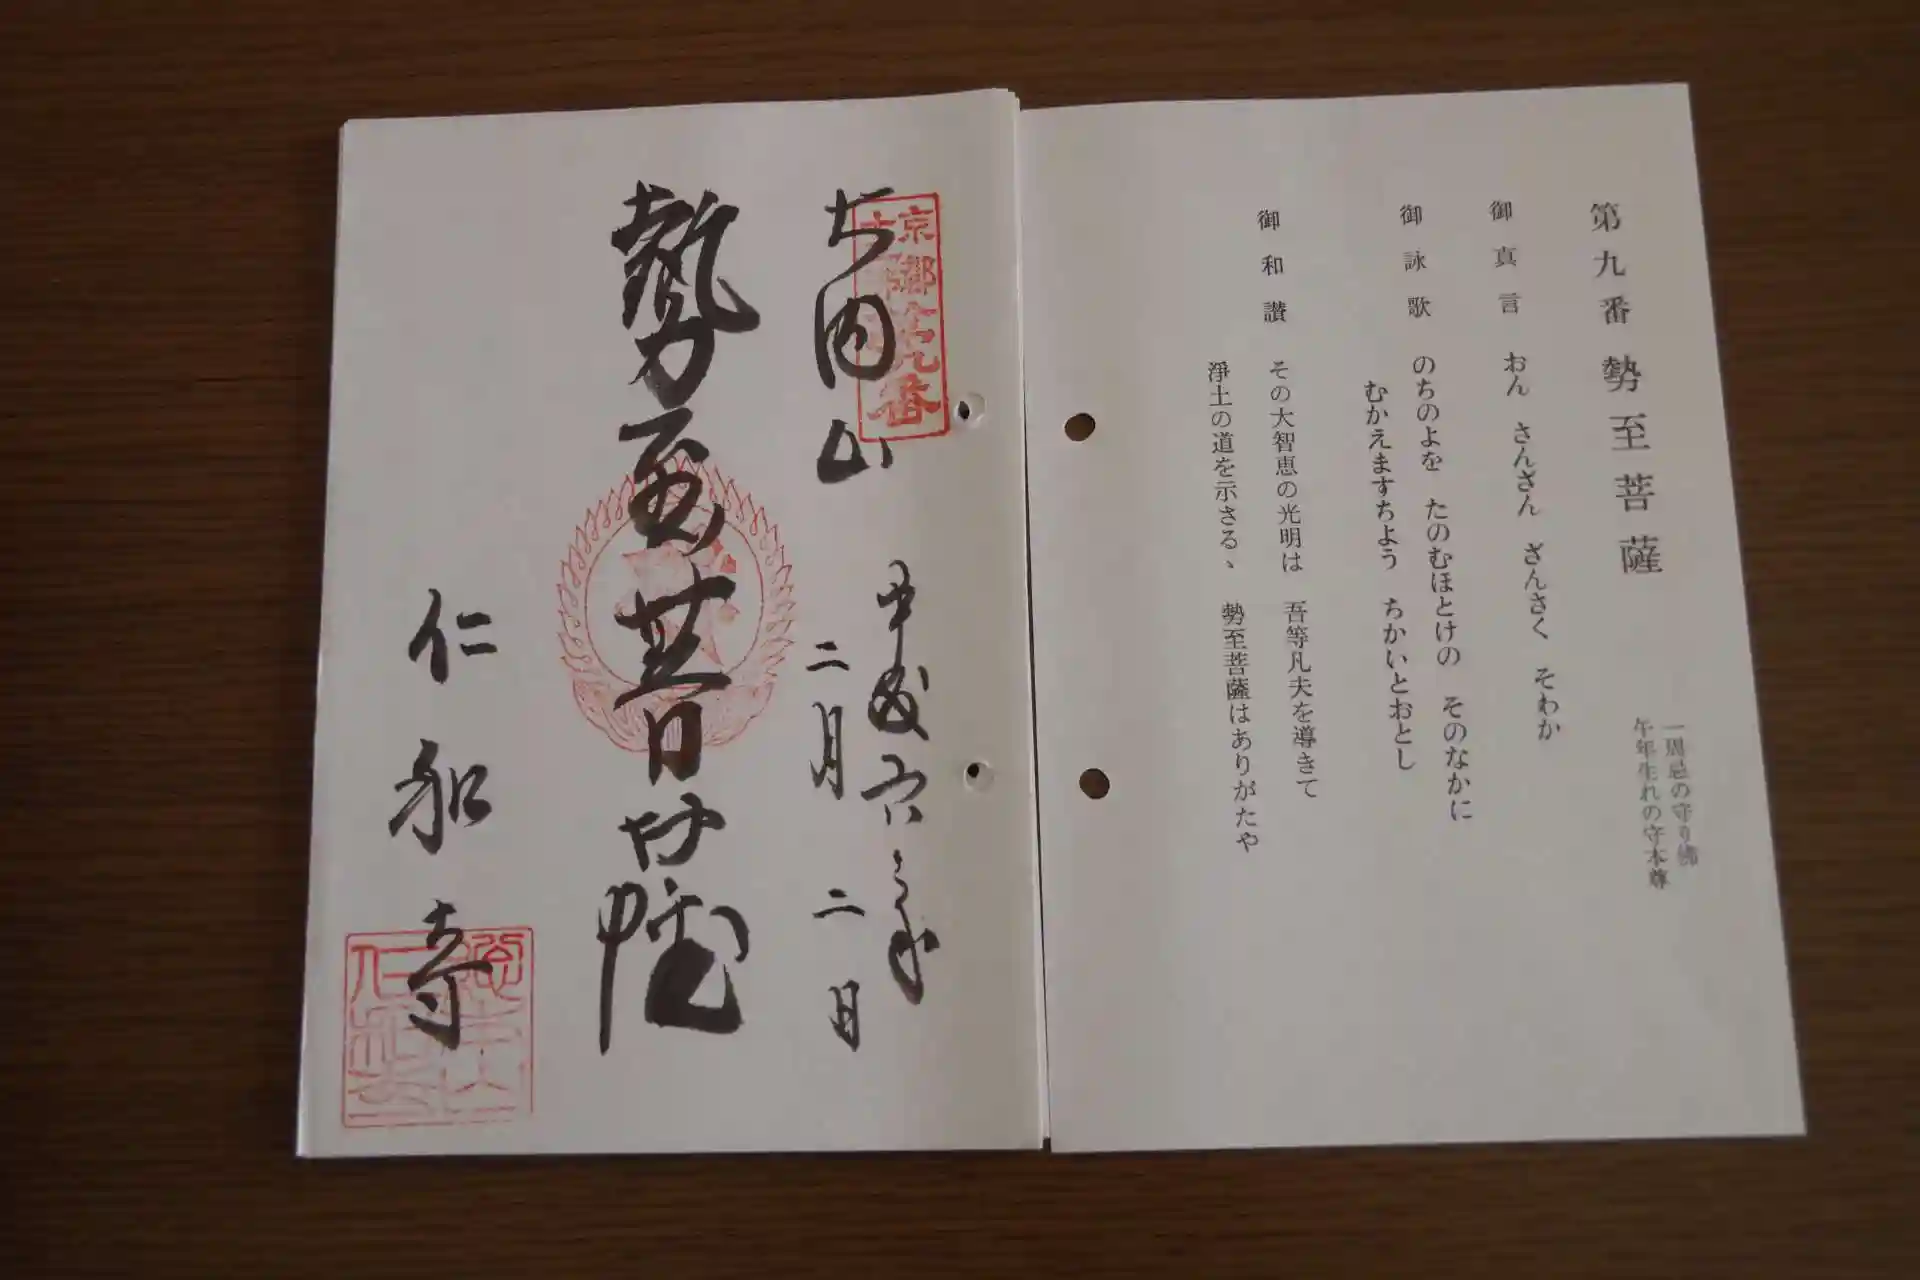 第九番 勢至菩薩
一周忌の守り佛
午年生れの守本尊
御真言 おん さんざん ざんさく そわか
御詠歌 のちのよを たのむほとけの そのなかに
むかえますちよう ちかいとおとし
御和讃 その大智恵の光明は 吾等凡夫を導きて
淨土の道を示さるゝ 勢至菩薩はありがたや
二月二日
勢至菩薩
仁和寺